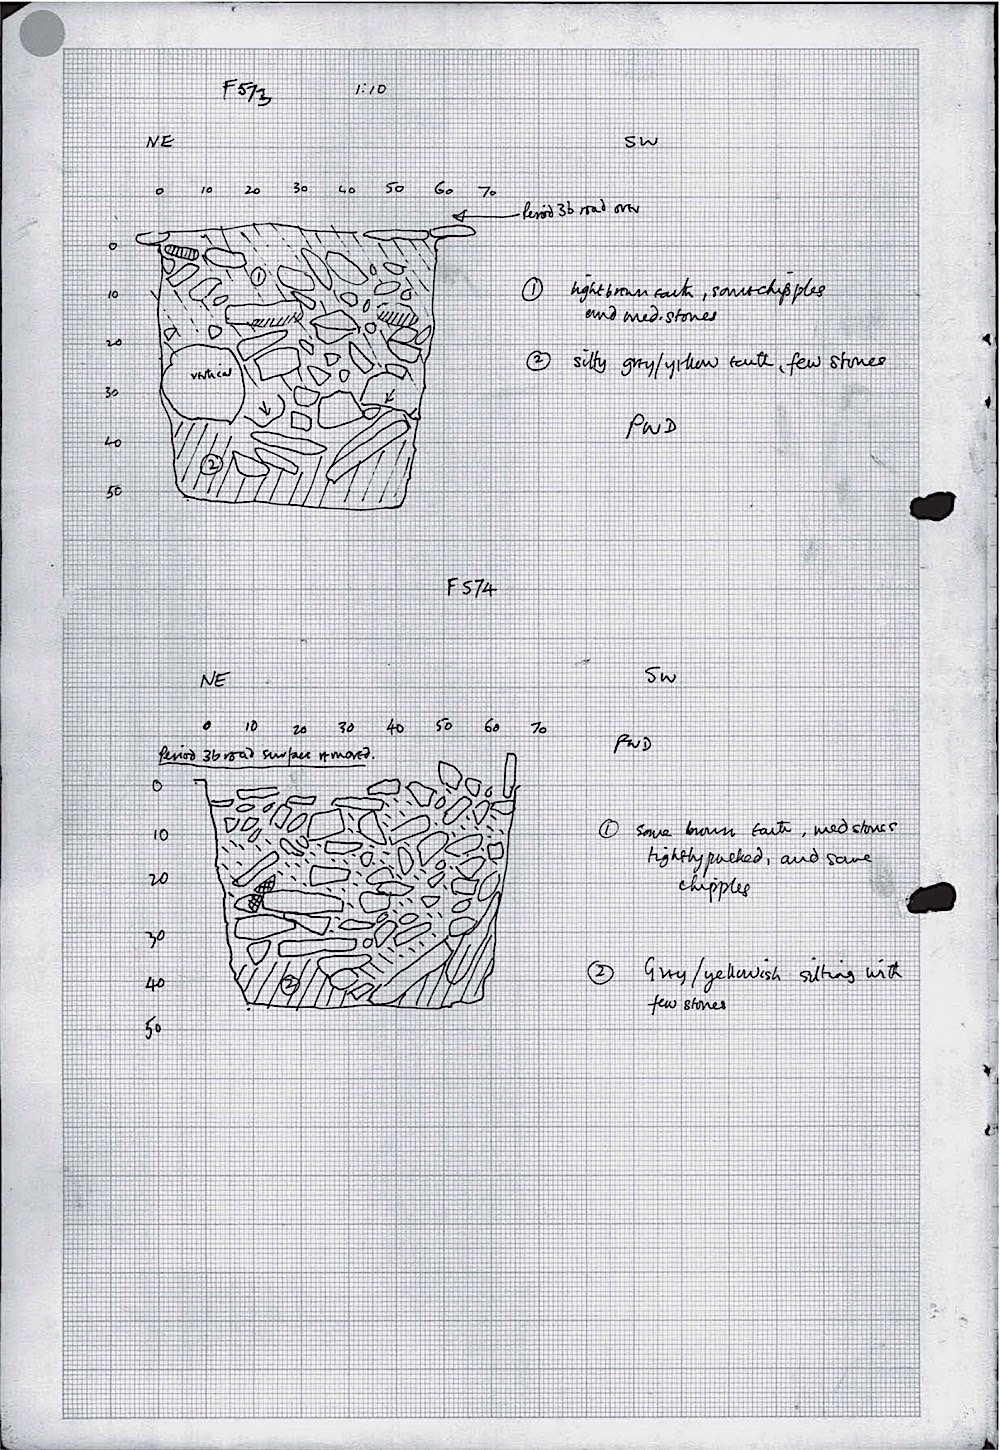 F573 1:10
NE SW
0 10 20 30 40 50 60 70
Period 3b road over
0
10
20
30
40
50
1
vertical
2
1 light brown earth, some chipples
and med. stones
2 silty grey/yellow earth, few stones
PWD
F574
NE SW
0 10 20 30 40 50 60 70
PWD
Period 3b road surface removed.
0
10
20
30
40
50
2
1 some brown earth, med stones
tightly packed, and some
chipples
2 Grey/yellowish silting with
few stones